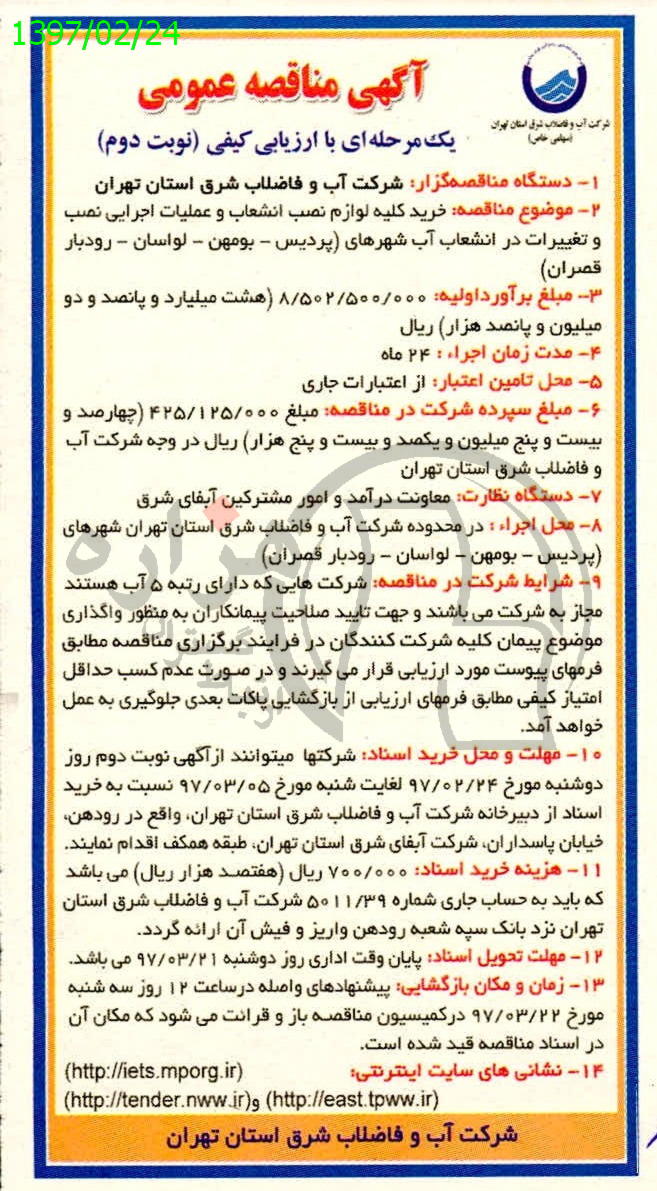 1397/02/24
شرکت آب و فاضلاب شرق استان تهران
(سهامی خاص)
آگهی مناقصه عمومی
یک مرحله‌ای با ارزیابی کیفی (نوبت دوم)
۱- دستگاه مناقصه‌گزار: شرکت آب و فاضلاب شرق استان تهران
۲- موضوع مناقصه: خرید کلیه لوازم نصب انشعاب و عملیات اجرایی نصب
و تغییرات در انشعاب آب شهرهای (پردیس - بومهن - لواسان - رودبار
قصران)
۳- مبلغ برآورداولیه: ۸/۵۰۲/۵۰۰/۰۰۰ (هشت میلیارد و پانصد و دو
میلیون و پانصد هزار) ریال
۴- مدت زمان اجراء : ۲۴ ماه
۵- محل تامین اعتبار: از اعتبارات جاری
۶- مبلغ سپرده شرکت در مناقصه: مبلغ ۴۲۵/۱۲۵/۰۰۰ (چهارصد و
بیست و پنج میلیون و یکصد و بیست و پنج هزار) ریال در وجه شرکت آب
و فاضلاب شرق استان تهران
۷- دستگاه نظارت: معاونت درآمد و امور مشترکین آبفای شرق
۸- محل اجراء : در محدوده شرکت آب و فاضلاب شرق استان تهران شهرهای
(پردیس - بومهن - لواسان - رودبار قصران)
۹- شرایط شرکت در مناقصه: شرکت هایی که دارای رتبه ۵ آب هستند
مجاز به شرکت می باشند و جهت تایید صلاحیت پیمانکاران به منظور واگذاری
موضوع پیمان کلیه شرکت کنندگان در فرایند برگزاری مناقصه مطابق
فرمهای پیوست مورد ارزیابی قرار می گیرند و در صورت عدم کسب حداقل
امتیاز کیفی مطابق فرمهای ارزیابی از بازگشایی پاکات بعدی جلوگیری به عمل
خواهد آمد.
۱۰- مهلت و محل خرید اسناد: شرکتها میتوانند ازآگهی نوبت دوم روز
دوشنبه مورخ ۹۷/۰۲/۲۴ لغایت شنبه مورخ ۹۷/۰۳/۰۵ نسبت به خرید
اسناد از دبیرخانه شرکت آب و فاضلاب شرق استان تهران، واقع در رودهن،
خیابان پاسداران، شرکت آبفای شرق استان تهران، طبقه همکف اقدام نمایند.
۱۱- هزینه خرید اسناد: ۷۰۰/۰۰۰ ریال (هفتصد هزار ریال) می باشد
که باید به حساب جاری شماره ۵۰۱۱/۳۹ شرکت آب و فاضلاب شرق استان
تهران نزد بانک سپه شعبه رودهن واریز و فیش آن ارائه گردد.
۱۲- مهلت تحویل اسناد: پایان وقت اداری روز دوشنبه ۹۷/۰۳/۲۱ می باشد.
۱۳- زمان و مکان بازگشایی: پیشنهادهای واصله درساعت ۱۲ روز سه شنبه
مورخ ۹۷/۰۳/۲۲ درکمیسیون مناقصه باز و قرائت می شود که مکان آن
در اسناد مناقصه قید شده است.
۱۴- نشانی های سایت اینترنتی: (http://iets.mporg.ir)
(http://east.tpww.ir) و(http://tender.nww.ir)
شرکت آب و فاضلاب شرق استان تهران